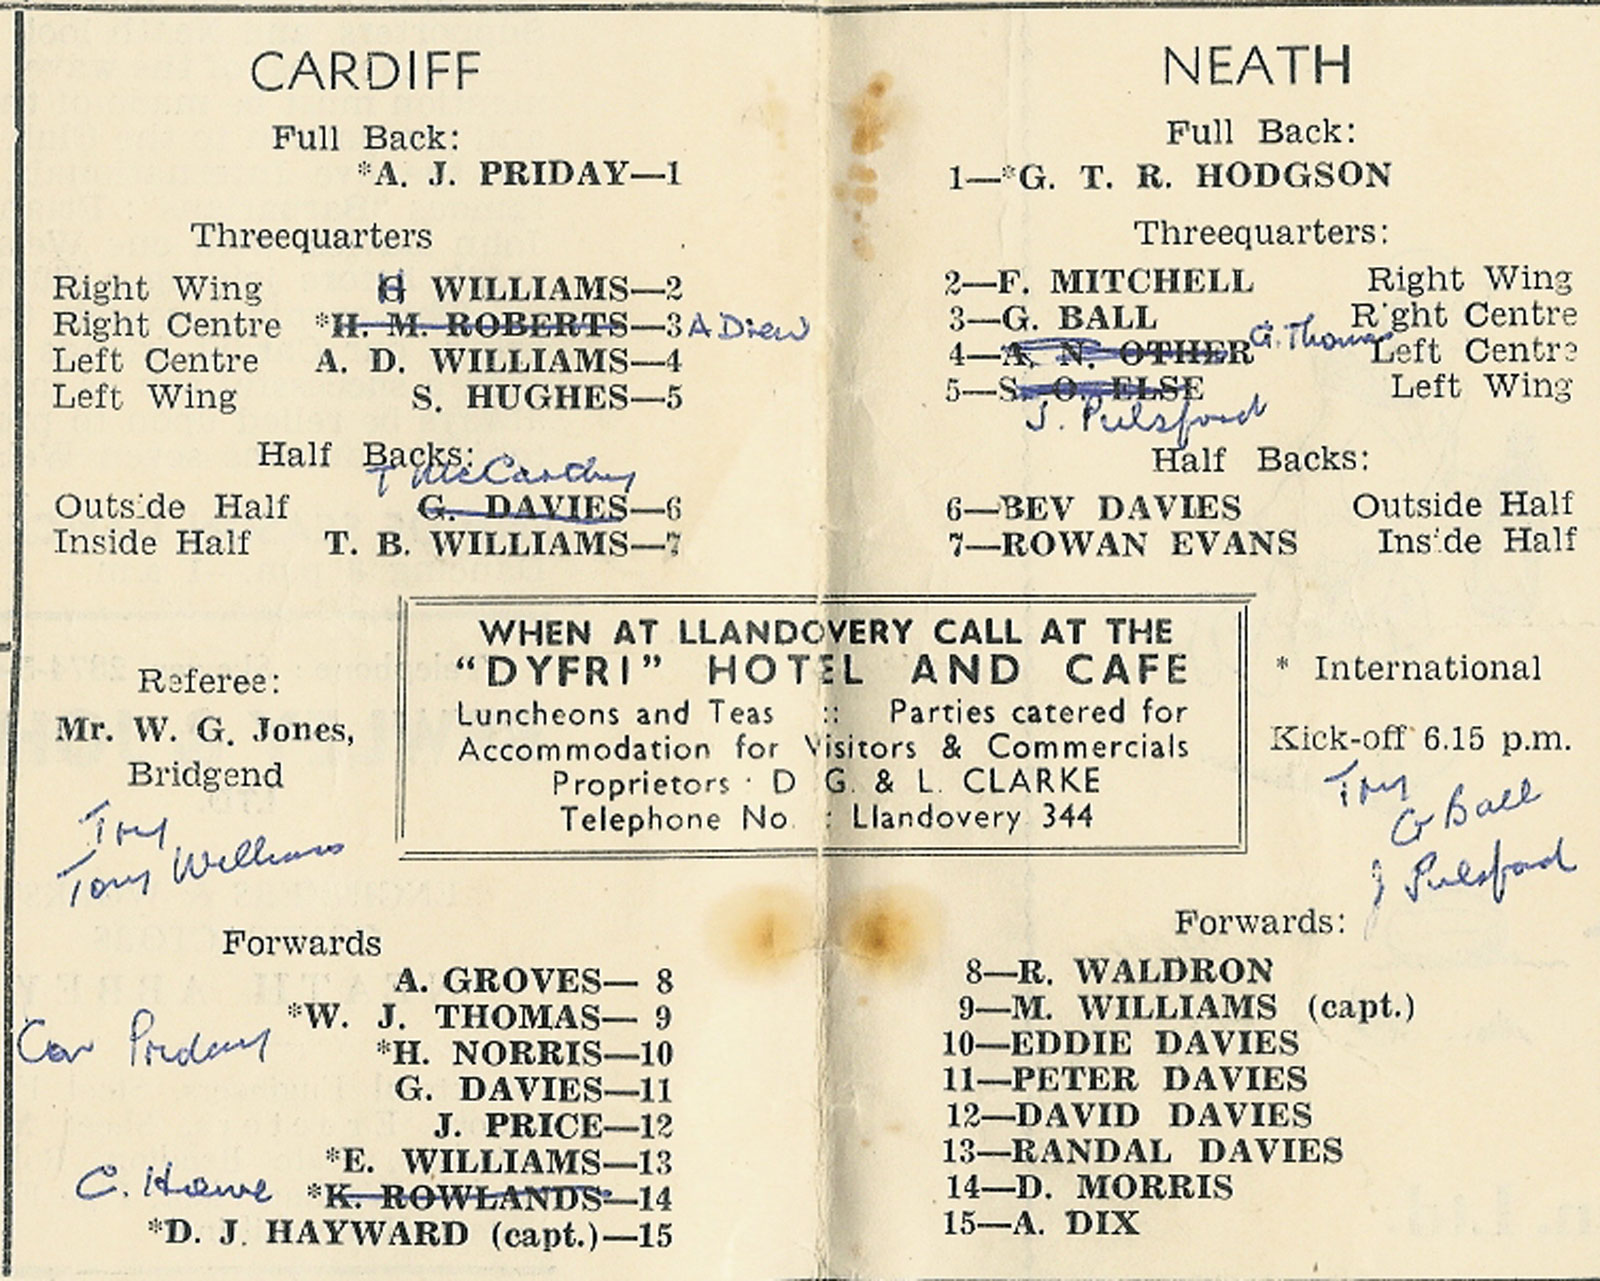 CARDIFF
Full Back:
*A. J. PRIDAY—1
Threequarters
Right Wing H WILLIAMS—2
Right Centre *H. M. ROBERTS—3 A Drew
Left Centre A. D. WILLIAMS—4
Left Wing S. HUGHES—5
Half Backs:
T McCarthy
Outside Half G. DAVIES—6
Inside Half T. B. WILLIAMS—7
NEATH
Full Back:
1—*G. T. R. HODGSON
Threequarters:
2—F. MITCHELL Right Wing
3—G. BALL Right Centre
4—A. N. OTHER G. Thomas Left Centre
5—S. O. ELSE Left Wing
J. Pulsford
Half Backs:
6—BEV DAVIES Outside Half
7—ROWAN EVANS Inside Half
Referee:
Mr. W. G. Jones,
Bridgend
Try
Tony Williams
WHEN AT LLANDOVERY CALL AT THE
"DYFRI" HOTEL AND CAFE
Luncheons and Teas :: Parties catered for
Accommodation for Visitors & Commercials
Proprietors : D. G. & L. CLARKE
Telephone No. : Llandovery 344
* International
Kick-off 6.15 p.m.
Try
G Ball
J Pulsford
Forwards
A. GROVES— 8
*W. J. THOMAS— 9
Con Priday
*H. NORRIS—10
G. DAVIES—11
J. PRICE—12
*E. WILLIAMS—13
C. Howe *K. ROWLANDS—14
*D. J. HAYWARD (capt.)—15
Forwards:
8—R. WALDRON
9—M. WILLIAMS (capt.)
10—EDDIE DAVIES
11—PETER DAVIES
12—DAVID DAVIES
13—RANDAL DAVIES
14—D. MORRIS
15—A. DIX